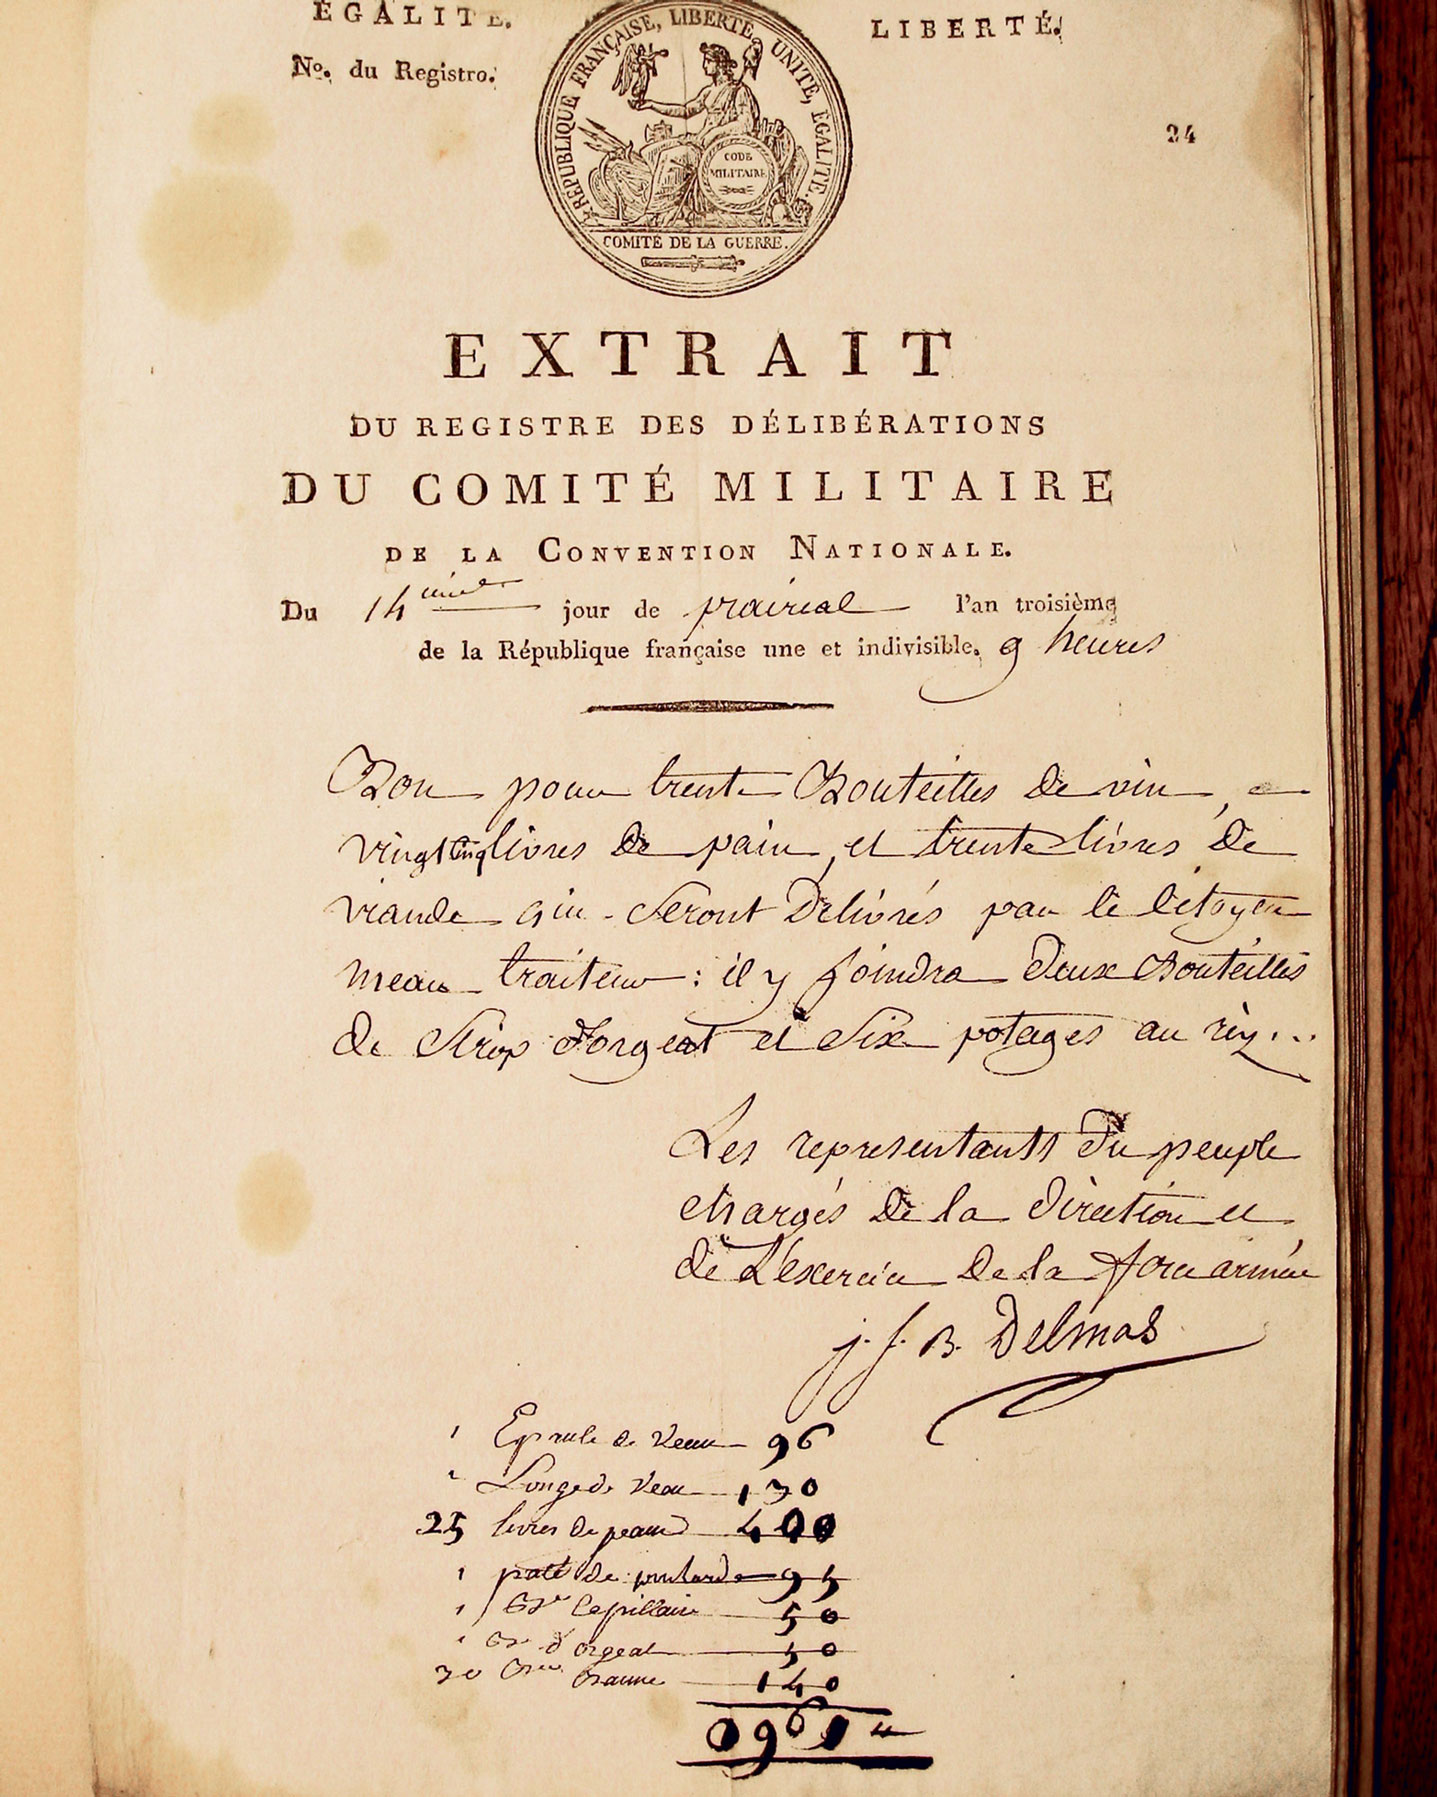 ÉGALITÉ.
LIBERTÉ.
Nº. du Registre.
RÉPUBLIQUE FRANÇAISE, LIBERTÉ, UNITÉ, ÉGALITÉ.
24
CODE
MILITAIRE
COMITÉ DE LA GUERRE.
EXTRAIT
DU REGISTRE DES DÉLIBÉRATIONS
DU COMITÉ MILITAIRE
DE LA CONVENTION NATIONALE.
Du 14 jour de prairial l'an troisième
de la République française une et indivisible. 9 heures
Bon pour trente Bouteilles de vin,
vingt cinq livres de pain, et trente livres de
viande qui seront Délivrés par le Citoyen
meau traiteur : il y joindra deux Bouteilles
de Sirop d'orgeat et Six potages au riz...
Les representants du peuple
chargés de la direction et
de L'exercice de la force armée
j. f. B. Delmas
1 Epaule de Veau 96
1 Longe de Veau 130
25 livres de 400
1 paté de 95
1 Capillaire 50
1 d'orgeat 50
30 140
0961 "